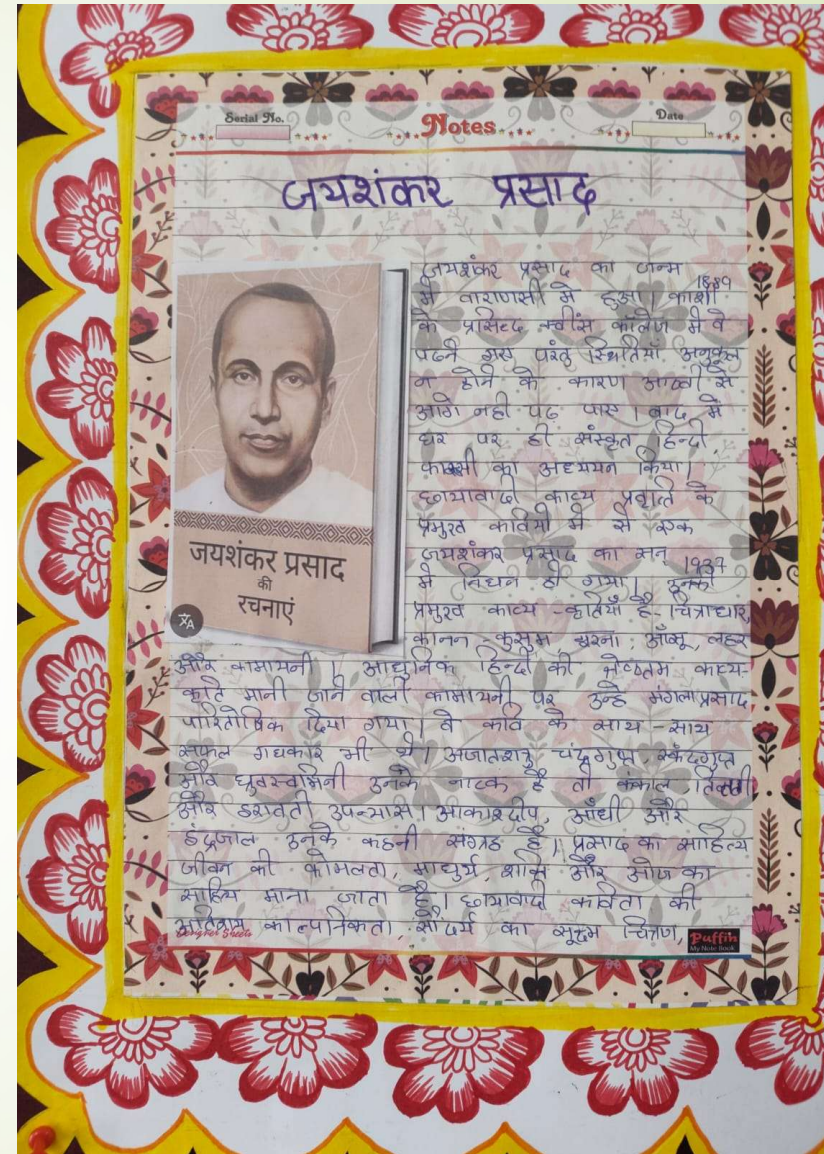 Serial No.
Notes
Date
जयशंकर प्रसाद
जयशंकर प्रसाद का जन्म 1889
में वाराणसी में हुआ। काशी
के प्रसिद्द क्वींस कॉलेज में वे
पढने गए परंतु स्थितियाँ अनुकूल
न होने के कारण आठवी से
आगे नही पढ पाए। बाद में
घर पर ही संस्कृत हिन्दी
फारसी का अध्ययन किया।
छायावादी काव्य प्रवृत्ति के
प्रमुख कवियों में से एक
जयशंकर प्रसाद का सन् 1937
में निधन हो गया। इनकी
प्रमुख काव्य-कृतियाँ है- चित्राधार,
कानन-कुसुम झरना, आँसू, लहर
जयशंकर प्रसाद
की
रचनाएं
और कामायनी। आधुनिक हिन्दी की श्रेष्ठतम काव्य-
कृति मानी जाने वाली कामायनी पर उन्हे मंगलाप्रसाद
पारितोषिक दिया गया। वे कवि के साथ-साथ
सफल गद्यकार भी थे। अजातशत्रु चंद्रगुप्त, स्कंदगुप्त
और ध्रुवस्वामिनी उनके नाटक है तो कंकाल तितली
और इरावती उपन्यास। आकाशदीप, आँधी और
इंद्रजाल उनके कहनी संग्रह है। प्रसाद का साहित्य
जीवन की कोमलता, माधुर्य, शक्ति और ओज का
साहित्य माना जाता है। छायावादी कविता की
अतिशय काल्पनिकता, सौंदर्य का सूक्ष्म चित्रण,
Designer Sheets
Puffin
My Note Book